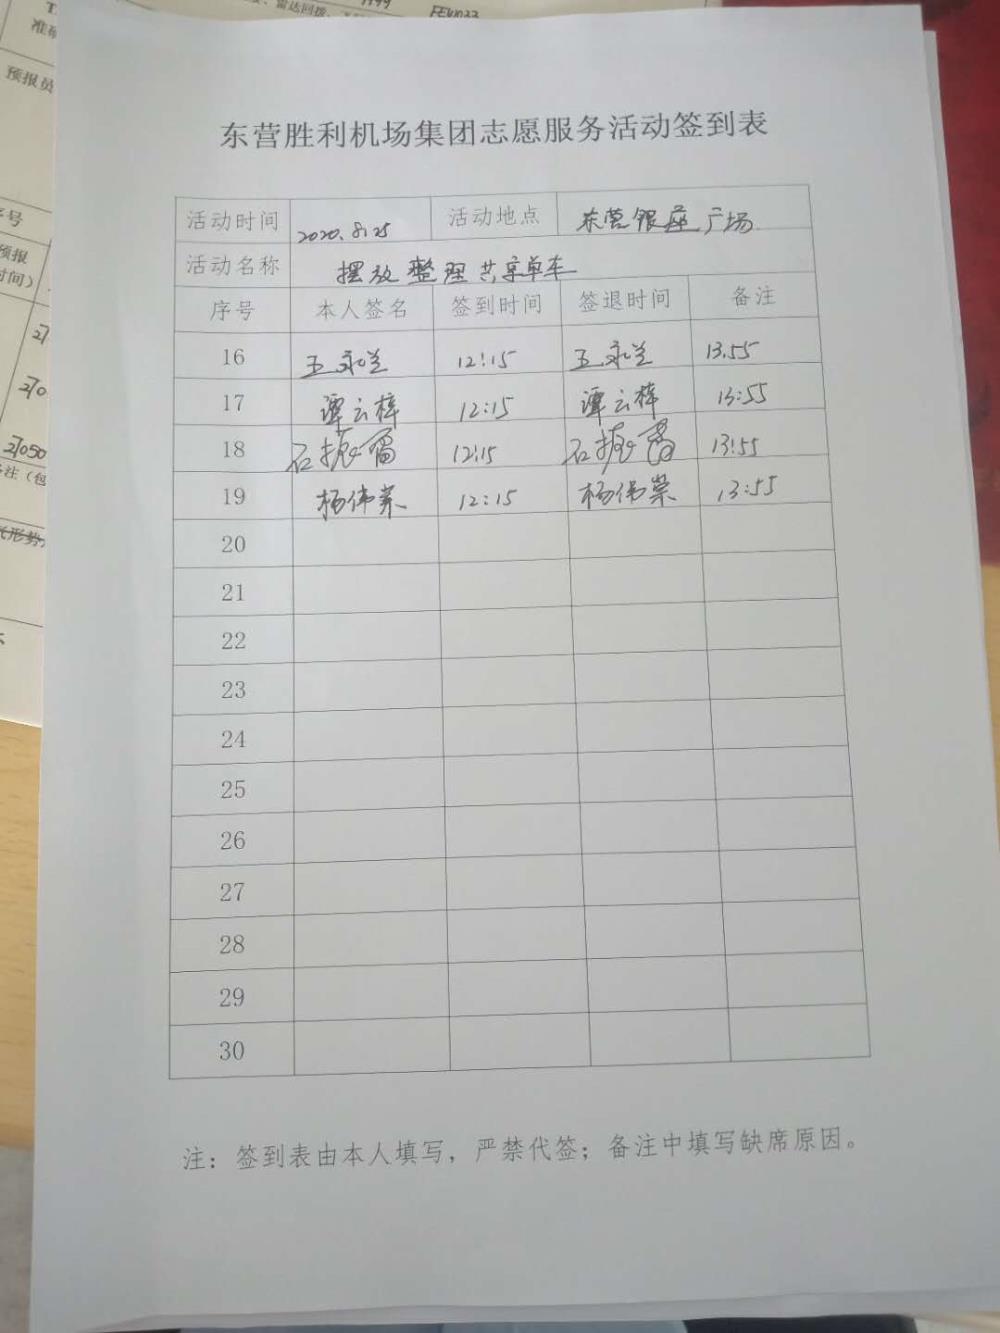 东营胜利机场集团志愿服务活动签到表
活动时间 2020.8.25 活动地点 东营银座广场
活动名称 摆放整理共享单车
序号 本人签名 签到时间 签退时间 备注
16 王永兰 12:15 王永兰 13.55
17 谭云梓 12:15 谭云梓 13:55
18 石振 12:15 石振 13:55
19 杨伟荣 12:15 杨伟荣 13:55
20
21
22
23
24
25
26
27
28
29
30
注：签到表由本人填写，严禁代签；备注中填写缺席原因。
预报员
序号
预报
时间）
27050